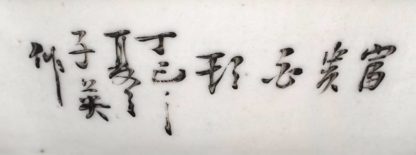 富貴白頭
丁巳
夏
子英
作